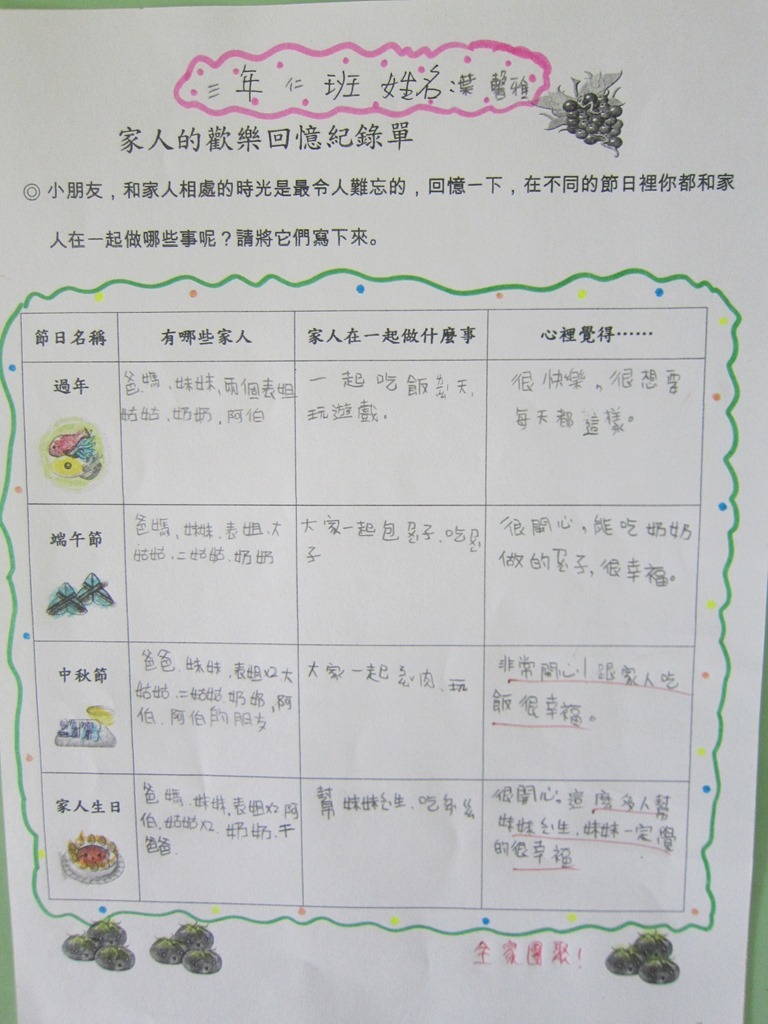 三年仁班姓名葉馨雅
家人的歡樂回憶紀錄單
◎小朋友，和家人相處的時光是最令人難忘的，回憶一下，在不同的節日裡你都和家
人在一起做哪些事呢？請將它們寫下來。
節日名稱 有哪些家人 家人在一起做什麼事 心裡覺得……
過年
爸媽、妹妹、兩個表姐
姑姑、奶奶，阿伯
一起吃飯ㄌㄠˊ天，
玩遊戲。
很快樂。很想要
每天都這樣。
端午節
爸媽，妹妹、表姐、大
姑姑、二姑姑、奶奶
大家一起包ㄗㄨㄥˋ子、吃ㄗㄨㄥˋ
子
很開心，能吃奶奶
做的ㄗㄨㄥˋ子，很幸福。
中秋節
爸爸、妹妹，表姐x2大
姑姑、二姑姑奶奶，阿
伯、阿伯的朋友
大家一起ㄎㄠˇ肉、玩
非常開心！跟家人吃
飯很幸福。
家人生日
爸媽、妹妹，表姐x2阿
伯，姑姑x2、奶奶、干
爸爸
幫妹妹ㄑㄧㄥˋ生、吃
很開心。這麼多人幫
妹妹ㄑㄧㄥˋ生，妹妹一定覺
的很幸福
全家團聚！